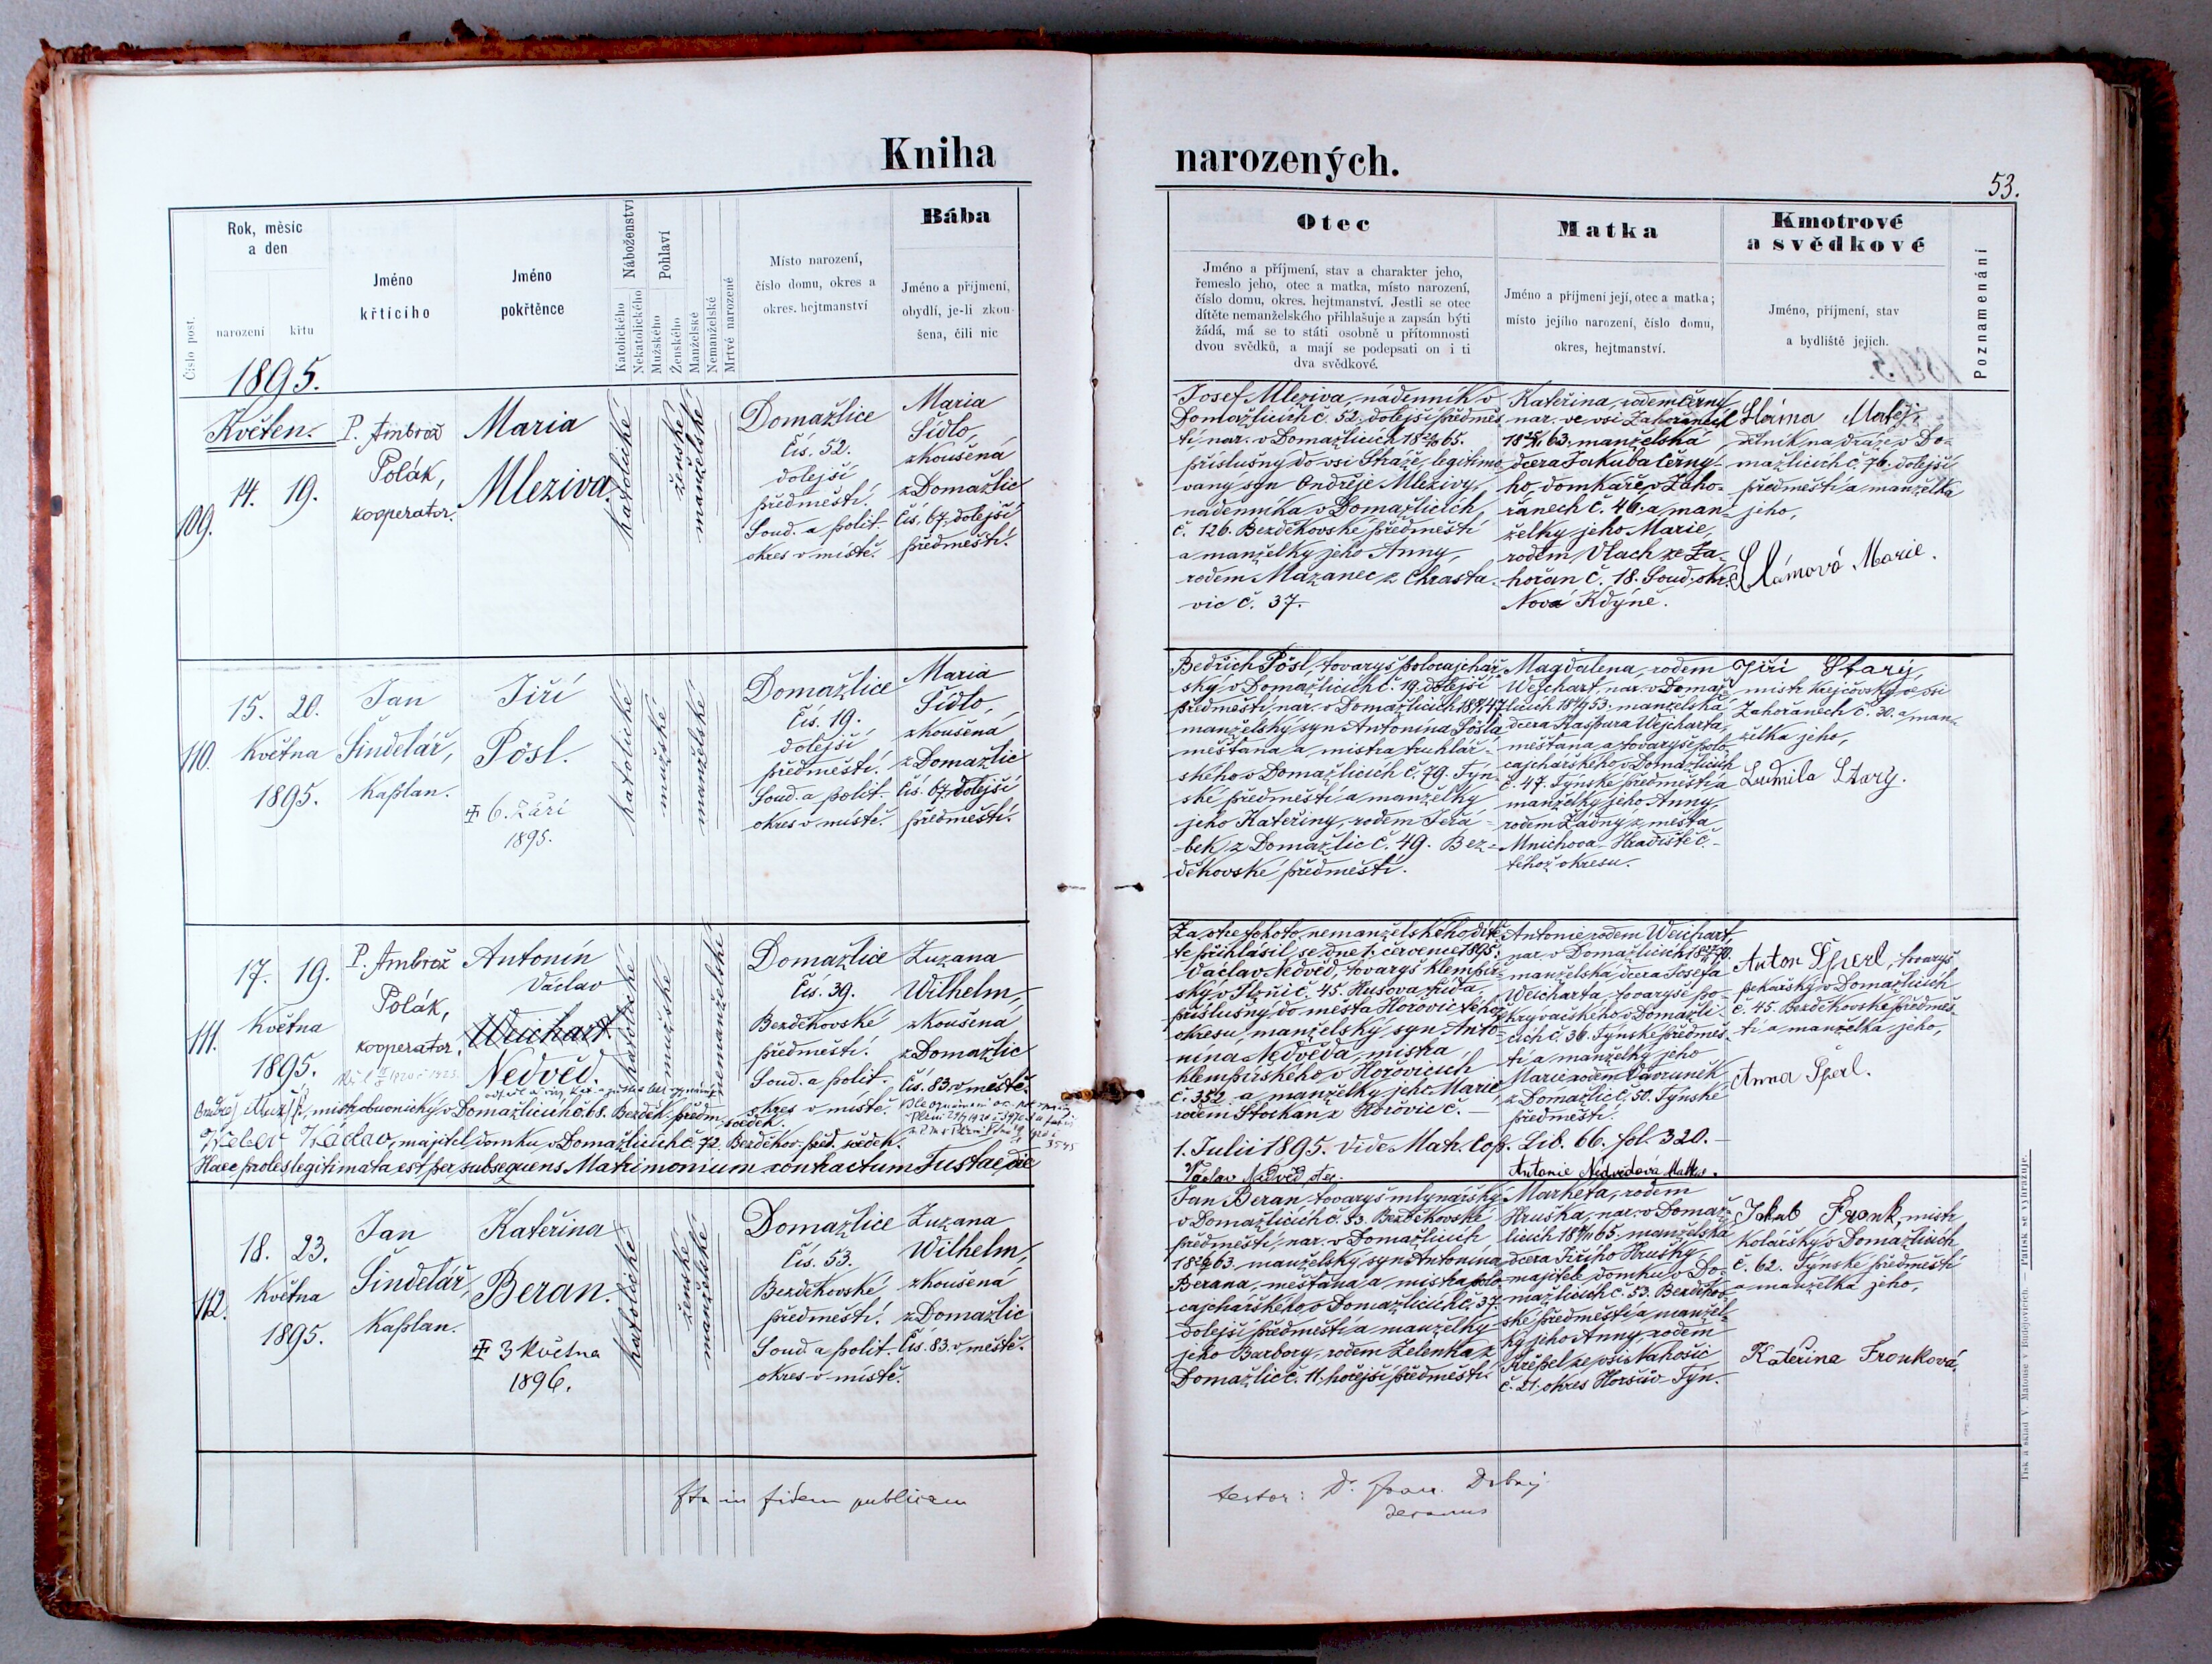 Kniha
narozených.
53.
Číslo post.
Rok, měsíc
a den
narození
křtu
Jméno
křtícího
Jméno
pokřtěnce
Náboženství
Katolického
Nekatolického
Pohlaví
Mužského
Ženského
Manželské
Nemanželské
Mrtvě narozené
Místo narození,
číslo domu, okres a
okres. hejtmanství
Bába
Jméno a příjmení,
obydlí, je-li zkou-
šena, čili nic
Otec
Jméno a příjmení, stav a charakter jeho,
řemeslo jeho, otec a matka, místo narození,
číslo domu, okres. hejtmanství. Jestli se otec
dítěte nemanželského přihlašuje a zapsán býti
žádá, má se to státi osobně u přítomnosti
dvou svědků, a mají se podepsati on i ti
dva svědkové.
Matka
Jméno a příjmení její, otec a matka;
místo jejího narození, číslo domu,
okres, hejtmanství.
Kmotrové
a svědkové
Jméno, příjmení, stav
a bydliště jejich.
Poznamenání
1895.
Květen.
109.
14. 19.
P. Ambrož
Polák,
kooperator.
Maria
Mleziva.
katolické
ženské
manželské
Domažlice
čís. 52.
dolejší
předměstí.
Soud. a polit.
okres v místě.
Maria
Šídlo,
zkoušená
z Domažlic
čís. 67. dolejší
předměstí.
Josef Mleziva, nádenník v
Domažlicích č. 52. dolejší předměs-
tí, nar. v Domažlicích 65.
příslušný do vsi Stráže, legitimo-
vaný syn Ondřeje Mlezivy,
nádenníka v Domažlicích,
č. 126. Bezděkovské předměstí
a manželky jeho Anny,
rodem Mazanec z Chrasta-
vic č. 37.
Kateřina, rodem Černý
nar. ve vsi Zahořanech
63. manželská
dcera Jakuba Černý-
ho, domkáře v Zaho-
řanech č. 46. a man-
želky jeho Marie,
rodem Vlach ze Za-
hořan č. 18. Soud. okr.
Nová Kdýně.
Sláma Matěj.
dělník na dráze v Do-
mažlicích č. 76. dolejší
předměstí a manželka
jeho,
Slámová Marie.
110.
15. 20.
Května
1895.
Jan
Šindelář,
kaplan.
Jiří
Pösl.
6. září
1895.
katolické
mužské
manželské
Domažlice
čís. 19.
dolejší
předměstí.
Soud. a polit.
okres v místě.
Maria
Šídlo,
zkoušená
z Domažlic
čís. 67. dolejší
předměstí.
Bedřich Pösl, tovaryš polocajchář-
ský v Domažlicích č. 19. dolejší
předměstí, nar. v Domažlicích 47.
manželský syn Antonína Pösla
měšťana a mistra truhlář-
ského v Domažlicích č. 79. Týn-
ské předměstí a manželky
jeho Kateřiny, rodem Jeřá-
bek z Domažlic č. 49. Bez-
děkovské předměstí.
Magdalena, rodem
Wejchart, nar. v Domaž-
licích 53. manželská
dcera Kašpara Wejcharta,
měšťana a tovaryše polo-
cajchářského v Domažlicích
č. 47. Týnské předměstí a
manželky jeho Anny,
rodem Žádný z města
Mnichova-Hradiště č. -
téhož okresu.
Jiří Starý,
mistr krejčovský ve vsi
Zahořanech č. 30. a man-
želka jeho,
Ludmila Starý.
111.
17. 19.
Května
1895.
P. Ambrož
Polák,
kooperator.
Antonín
Václav
Weichart
Nedvěd.
katolické
mužské
nemanželské
Domažlice
čís. 39.
Bezděkovské
předměstí.
Soud. a polit.
okres v místě.
Zuzana
Wilhelm,
zkoušená
z Domažlic
čís. 83. v městě.
Za otce tohoto nemanželského dítě-
te přihlásil se dne 1. července 1895.
Václav Nedvěd, tovaryš klempíř-
ský v Plzni č. 45. Husova třída,
příslušný do města Hořovic téhož
okresu, manželský syn Anto-
nína Nedvěda, mistra
klempířského v Hořovicích
č. 352. a manželky jeho Marie,
rodem Stockan z Hořovic č. -
Antonie rodem Weichart,
nar. v Domažlicích
manželská dcera Josefa
Weicharta, tovaryše po-
krývačského v Domažli-
cích č. 36. Týnské předměs-
tí a manželky jeho
Marie rodem Vavruněk
z Domažlic č. 50. Týnské
předměstí.
Anton Šperl, tovaryš
pekařský v Domažlicích
č. 45. Bezděkovské předměs-
tí a manželka jeho,
Anna Šperl.
mistr obuvnický v Domažlicích č. 68. Bezděk. předm. svědek.
Václav, majitel domku v Domažlicích č. 72. Bezděkov. před. svědek.
Haec proles legitimata est per subsequens Matrimonium contractum Tustae die
1. Julii 1895. Vide Matr. Cop. Lib. 66. fol. 320.
Václav Nedvěd, otec.
Antonie Nedvědová Matka.
112.
18. 23.
Května
1895.
Jan
Šindelář,
kaplan.
Kateřina
Beran.
3 května
1896.
katolické
ženské
manželské
Domažlice
čís. 53.
Bezděkovské
předměstí.
Soud. a polit.
okres v místě.
Zuzana
Wilhelm,
zkoušená
z Domažlic
čís. 83. v městě.
Jan Beran tovaryš mlynářský
v Domažlicích č. 53. Bezděkovské
předměstí, nar. v Domažlicích
63. manželský syn Antonína
Berana, měšťana a mistra polo-
cajchařského v Domažlicích č. 37.
dolejší předměstí a manželky
jeho Barbory, rodem Zelenka z
Domažlic č. 11. hořejší předměstí.
Markéta, rodem
Hruška, nar. v Domaž-
licích 65. manželská
dcera Jiřího Hrušky,
majitele domku v Do-
mažlicích č. 53. Bezděkov-
ské předměstí a manžel-
ky jeho Anny, rodem
Křepel ze vsi Nahošic
č. 21. okres Horšův-Týn.
Jakub Fronk, mistr
kolářský v Domažlicích
č. 62. Týnské předměstí
a manželka jeho,
Kateřina Fronková.
Ita in fidem publicam
testor: Dr. Fran.
decanus
Tisk a sklad V. Matouše v Budějovicích. — Patisk se vyhrazuje.